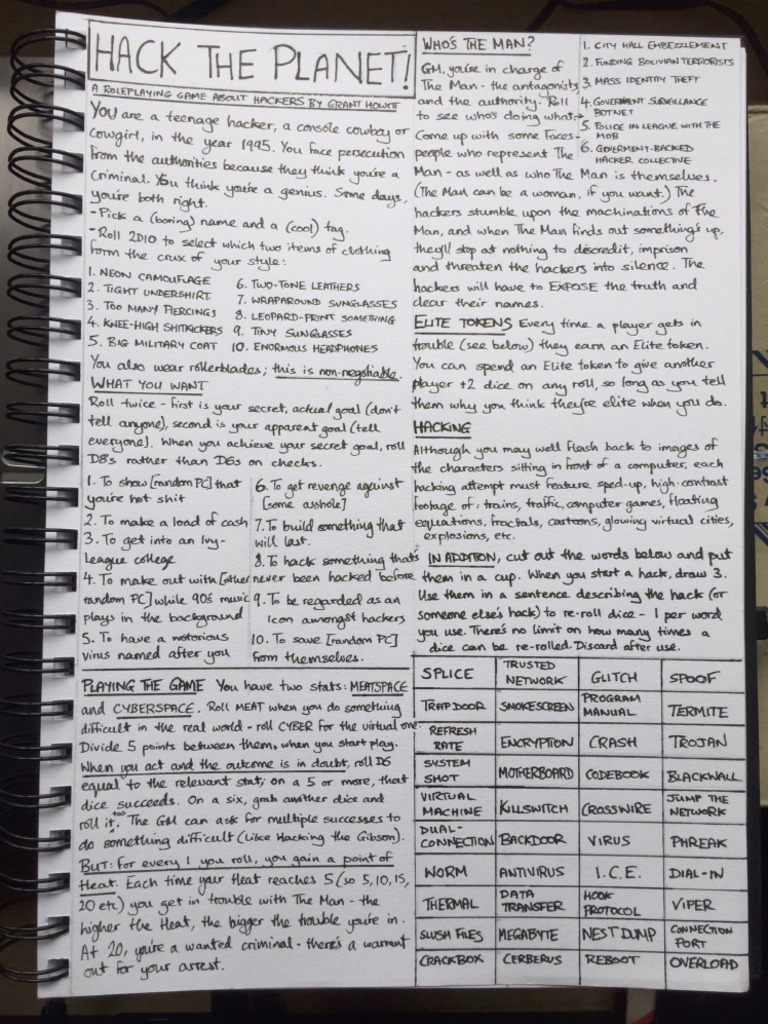 HACK THE PLANET!
A ROLEPLAYING GAME ABOUT HACKERS BY GRANT HOWITT
YOU are a teenage hacker, a console cowboy or
cowgirl, in the year 1995. You face persecution
from the authorities because they think you're a
criminal. You think you're a genius. Some days,
you're both right.
- Pick a (boring) name and a (cool) tag.
- Roll 2D10 to select which two items of clothing
form the crux of your style:
1. NEON CAMOUFLAGE
2. TIGHT UNDERSHIRT
3. TOO MANY PIERCINGS
4. KNEE-HIGH SHITKICKERS
5. BIG MILITARY COAT
6. TWO-TONE LEATHERS
7. WRAPAROUND SUNGLASSES
8. LEOPARD-PRINT SOMETHING
9. TINY SUNGLASSES
10. ENORMOUS HEADPHONES
You also wear rollerblades; this is non-negotiable.
WHAT YOU WANT
Roll twice - first is your secret, actual goal (don't
tell anyone), second is your apparent goal (tell
everyone). When you achieve your secret goal, roll
D8s rather than D6s on checks.
1. To show [random PC] that
you're hot shit
2. To make a load of cash
3. To get into an Ivy-
League college
4. To make out with [other
random PC] while 90s music
plays in the background
5. To have a notorious
virus named after you
6. To get revenge against
[some asshole]
7. To build something that
will last.
8. To hack something that's
never been hacked before
9. To be regarded as an
icon amongst hackers
10. To save [random PC]
from themselves.
PLAYING THE GAME You have two stats: MEATSPACE
and CYBERSPACE. Roll MEAT when you do something
difficult in the real world - roll CYBER for the virtual one.
Divide 5 points between them, when you start play.
When you act and the outcome is in doubt, roll D6
equal to the relevant stat; on a 5 or more, that
dice succeeds. On a six, grab another dice and
roll it too. The GM can ask for multiple successes to
do something difficult (like Hacking the Gibson).
BUT: for every 1 you roll, you gain a point of
Heat. Each time your Heat reaches 5 (so 5, 10, 15,
20 etc) you get in trouble with The Man - the
higher the Heat, the bigger the trouble you're in.
At 20, you're a wanted criminal - there's a warrant
out for your arrest.
WHO'S THE MAN?
GM, you're in charge of
The Man - the antagonists
and the authority. Roll
to see who's doing what→
Come up with some Faces -
people who represent The
1. CITY HALL EMBEZZLEMENT
2. FUNDING BOLIVIAN TERRORISTS
3. MASS IDENTITY THEFT
4. GOVERNMENT SURVEILLANCE
BOTNET
5. POLICE IN LEAGUE WITH THE
MOB
6. GOVERMENT-BACKED
HACKER COLLECTIVE
Man - as well as who The Man is themselves.
(The Man can be a woman, if you want.) The
hackers stumble upon the machinations of The
Man, and when The Man finds out something's up,
they'll stop at nothing to discredit, imprison
and threaten the hackers into silence. The
hackers will have to EXPOSE the truth and
clear their names.
ELITE TOKENS Every time a player gets in
trouble (see below) they earn an Elite token.
You can spend an Elite token to give another
player +2 dice on any roll, so long as you tell
them why you think they're elite when you do.
HACKING
Although you may well flash back to images of
the characters sitting in front of a computer, each
hacking attempt must feature sped-up, high-contrast
footage of: trains, traffic, computer games, floating
equations, fractals, cartoons, glowing virtual cities,
explosions, etc.
IN ADDITION, cut out the words below and put
them in a cup. When you start a hack, draw 3.
Use them in a sentence describing the hack (or
someone else's hack) to re-roll dice - 1 per word
you use. There's no limit on how many times a
dice can be re-rolled. Discard after use.
SPLICE TRUSTED NETWORK GLITCH SPOOF
TRAPDOOR SMOKESCREEN PROGRAM MANUAL TERMITE
REFRESH RATE ENCRYPTION CRASH TROJAN
SYSTEM SHOT MOTHERBOARD CODEBOOK BLACKWALL
VIRTUAL MACHINE KILLSWITCH CROSSWIRE JUMP THE NETWORK
DUAL-CONNECTION BACKDOOR VIRUS PHREAK
WORM ANTIVIRUS I.C.E. DIAL-IN
THERMAL DATA TRANSFER HOOK PROTOCOL VIPER
SLUSH FILES MEGABYTE NEST DUMP CONNECTION PORT
CRACKBOX CERBERUS REBOOT OVERLOAD